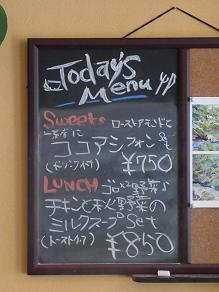 Today's
Menu
Sweets ローストアーモンドと
一緒に
ココアシフォン
(ドリンクイケ) ¥750
LUNCH ゴロゴロ野菜
チキンと秋野菜の
ミルクスープ Set
(トーストイケ) ¥850